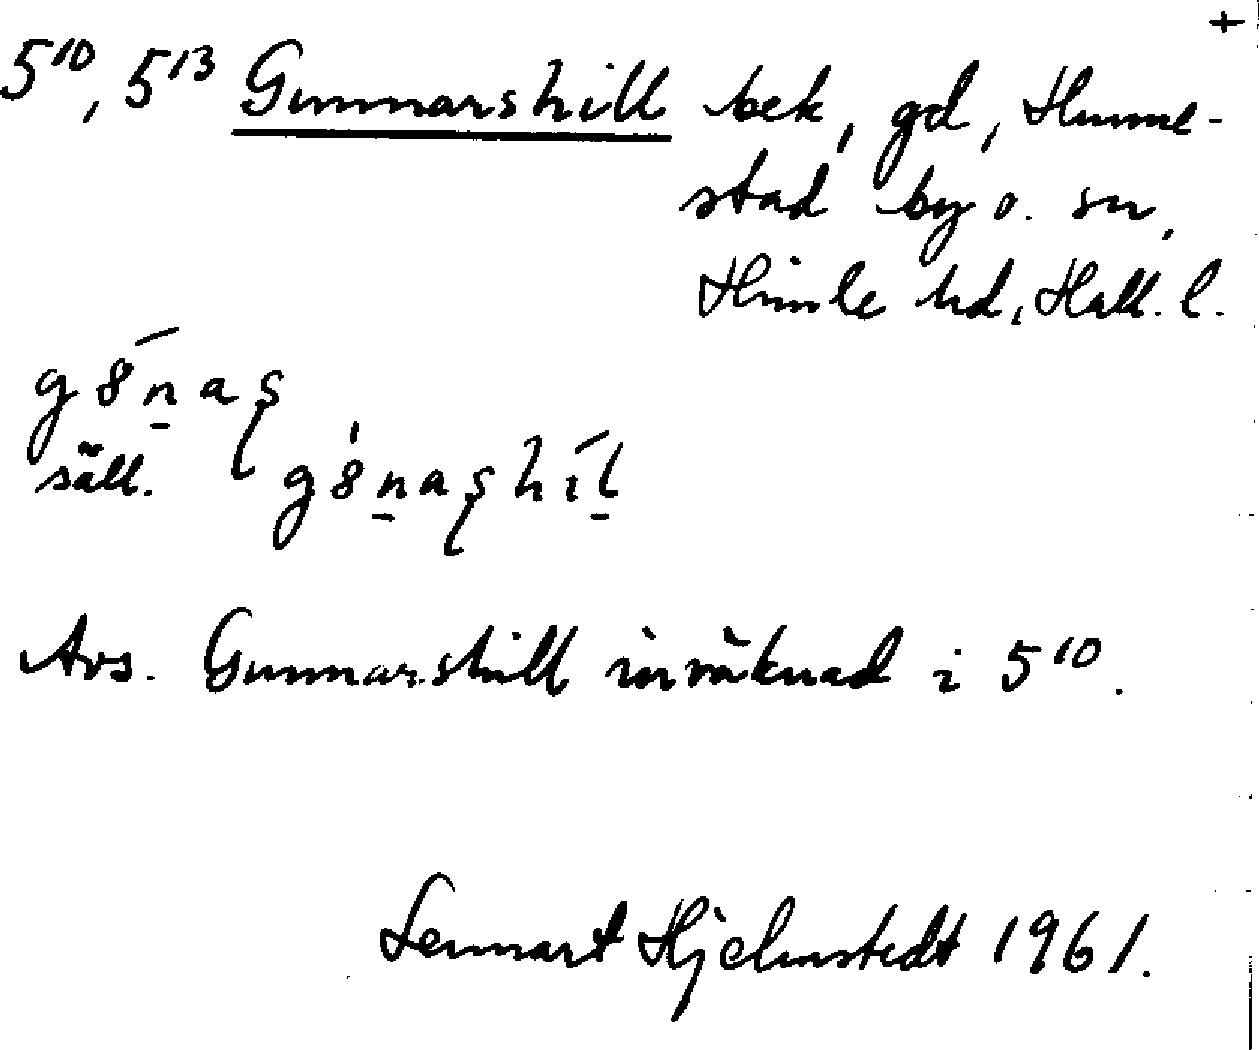 +
5¹⁰, 5¹³ Gunnarshill bek, gd, Hunne-
stad by o. sn,
Himle hd, Hall. l.
g8n̲aʂ
säll. g8n̲aʂhil̲
Avs. Gunnarshill inräknad i 5¹⁰.
Lennart Hjelmstedt 1961.